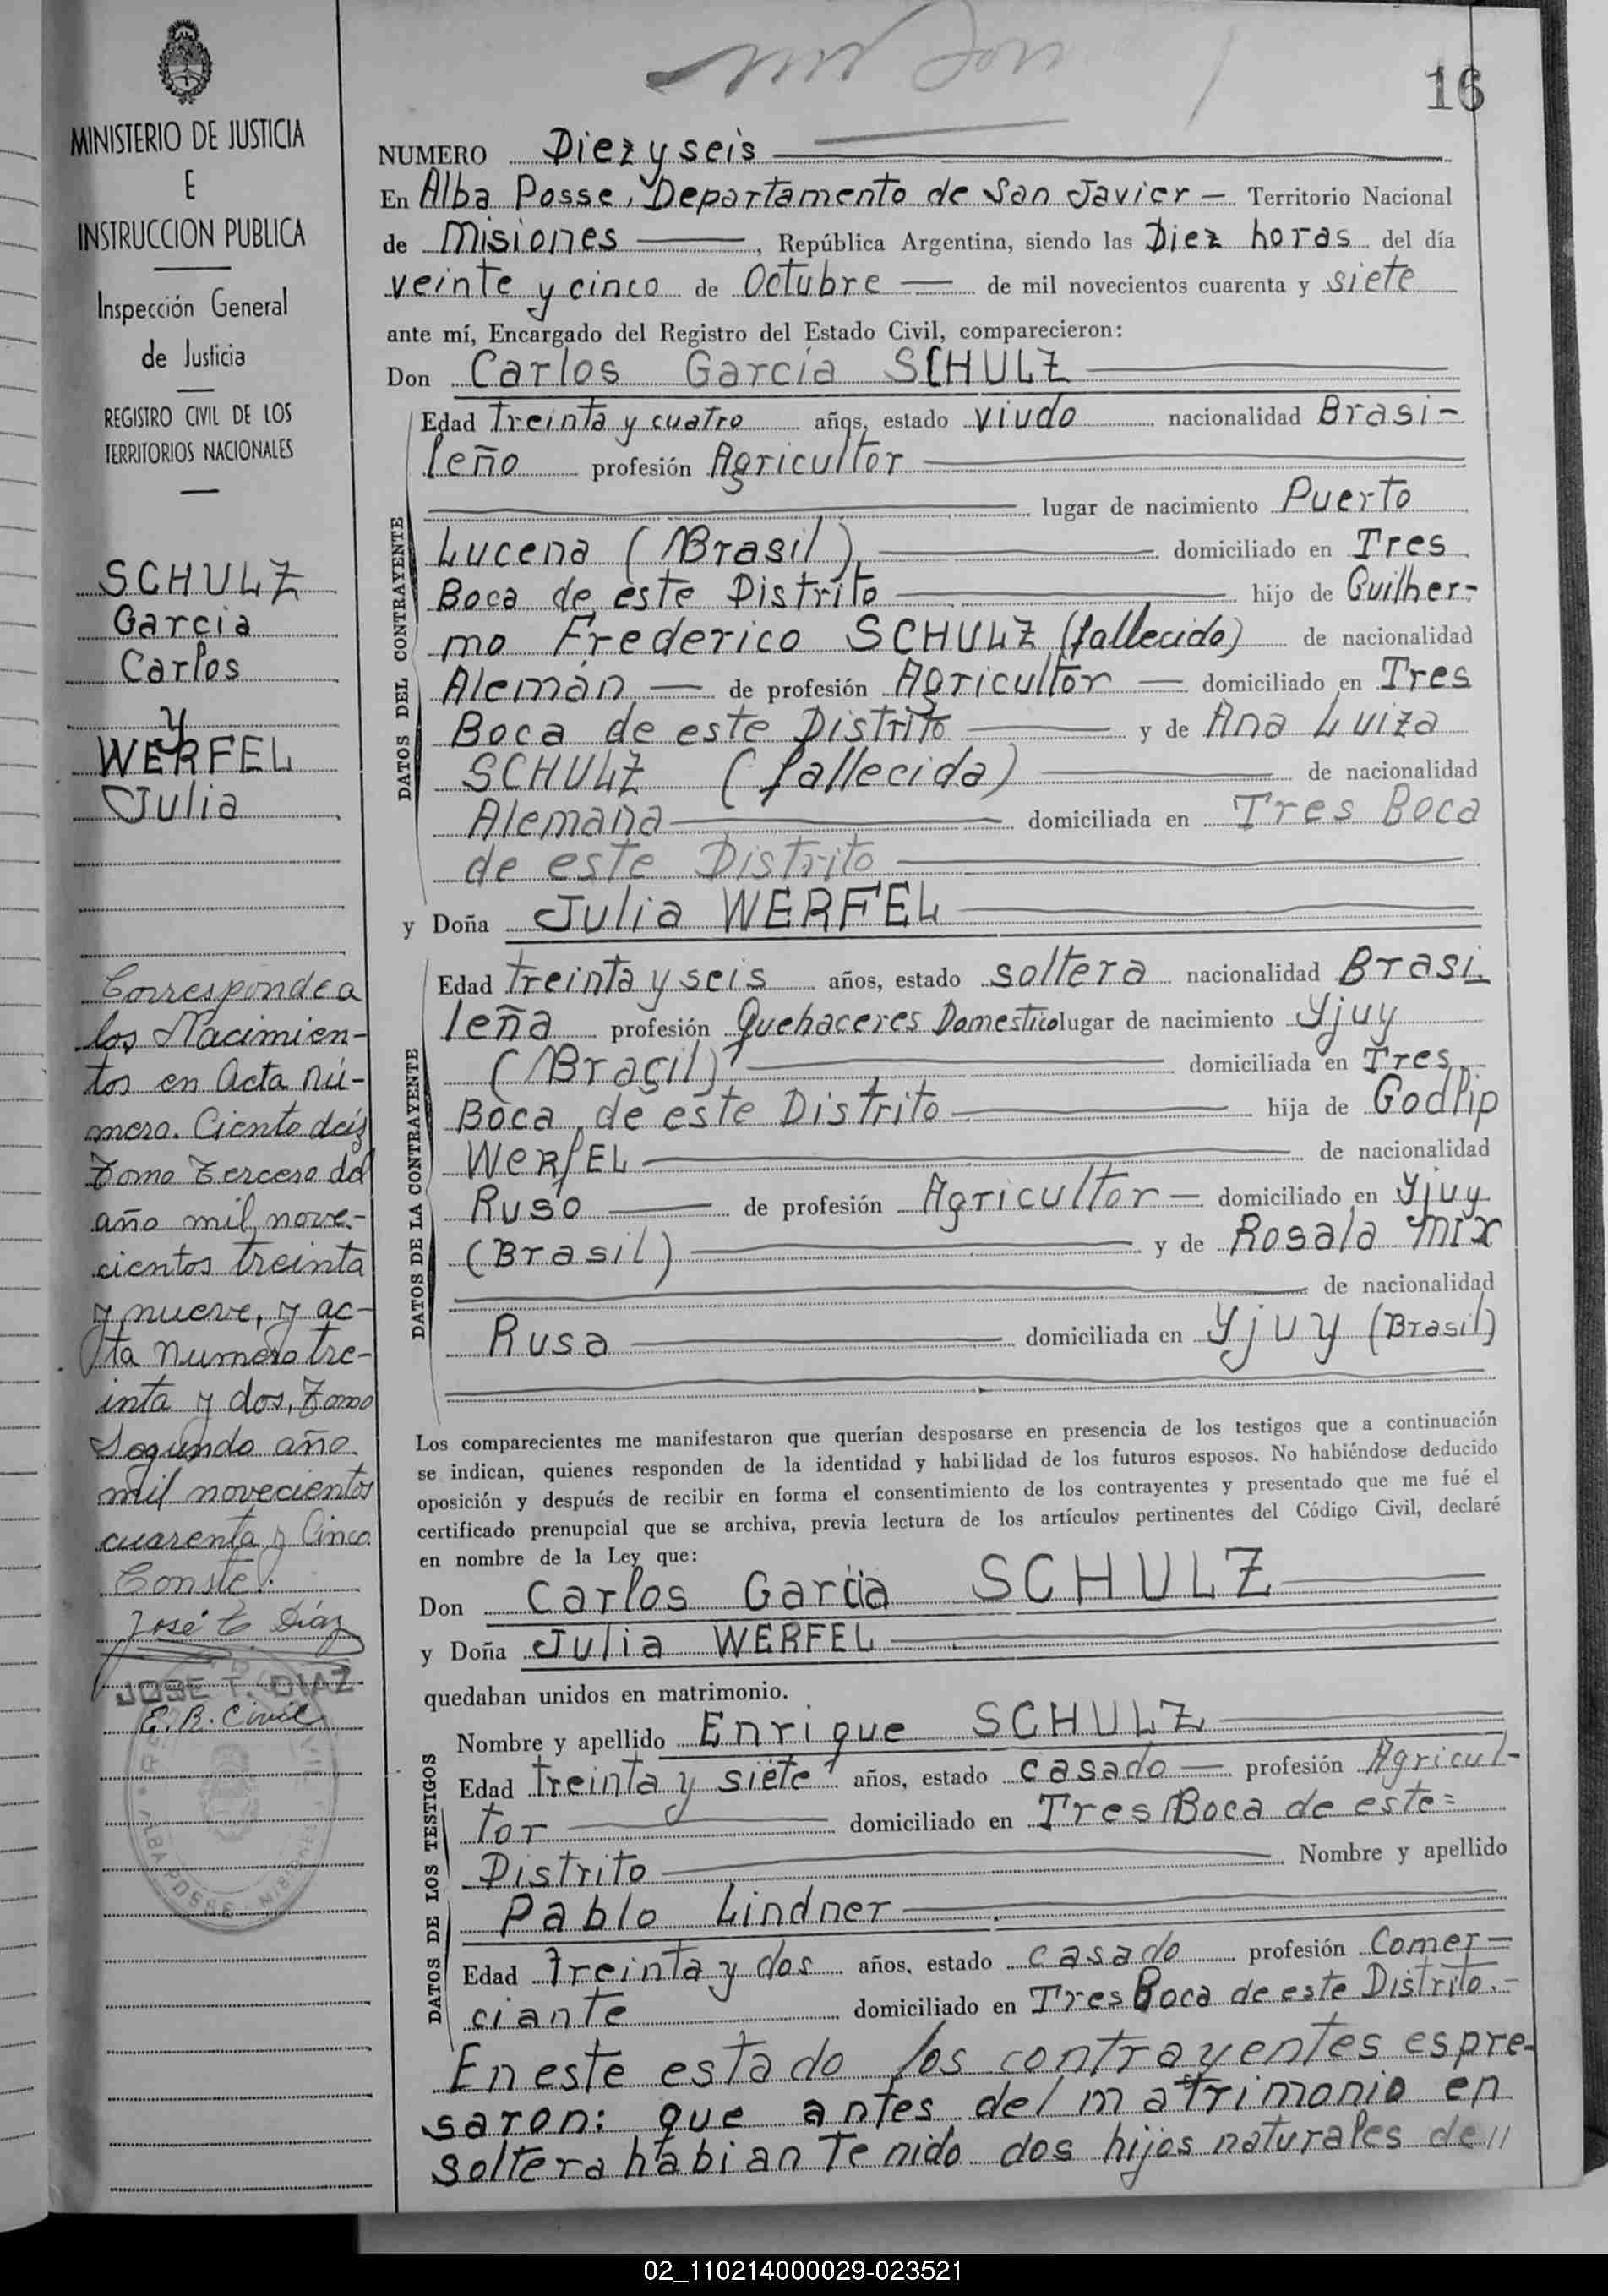 16
MINISTERIO DE JUSTICIA
E
INSTRUCCION PUBLICA
Inspección General
de Justicia
REGISTRO CIVIL DE LOS
TERRITORIOS NACIONALES
SCHULZ
Garcia
Carlos
y
WERFEL
Julia
Corresponde a
los Nacimien-
tos en Acta nú-
mero. Ciento deiz
Tomo Tercero del
año mil nove-
cientos treinta
y nueve, y ac-
ta numero tre-
inta y dos, Tomo
Segundo año
mil novecientos
cuarenta y Cinco.
Conste.
José T. Díaz
JOSE T. DIAZ
E. R. Civil
ALBA POSSE MISIONES
NUMERO Diez y seis
En Alba Posse, Departamento de San Javier - Territorio Nacional
de Misiones, República Argentina, siendo las Diez horas del día
veinte y cinco de Octubre de mil novecientos cuarenta y siete
ante mí, Encargado del Registro del Estado Civil, comparecieron:
Don Carlos Garcia SCHULZ
DATOS DEL CONTRAYENTE
Edad treinta y cuatro años, estado viudo nacionalidad Brasi-
leño profesión Agricultor
lugar de nacimiento Puerto
Lucena (Brasil) domiciliado en Tres
Boca de este Distrito hijo de Guilher-
mo Frederico SCHULZ (fallecido) de nacionalidad
Alemán de profesión Agricultor domiciliado en Tres
Boca de este Distrito y de Ana Luiza
SCHULZ (fallecida) de nacionalidad
Alemana domiciliada en Tres Boca
de este Distrito
y Doña Julia WERFEL
DATOS DE LA CONTRAYENTE
Edad treinta y seis años, estado soltera nacionalidad Brasi-
leña profesión Quehaceres Domestico lugar de nacimiento Yjuy
(Brasil) domiciliada en Tres
Boca de este Distrito hija de Godlip
WerfEL de nacionalidad
Ruso de profesión Agricultor - domiciliado en Yjuy
(Brasil) y de Rosala Mix
de nacionalidad
Rusa domiciliada en Yjuy (Brasil)
Los comparecientes me manifestaron que querían desposarse en presencia de los testigos que a continuación
se indican, quienes responden de la identidad y habilidad de los futuros esposos. No habiéndose deducido
oposición y después de recibir en forma el consentimiento de los contrayentes y presentado que me fué el
certificado prenupcial que se archiva, previa lectura de los artículos pertinentes del Código Civil, declaré
en nombre de la Ley que:
Don Carlos Garcia SCHULZ
y Doña Julia WERFEL
quedaban unidos en matrimonio.
DATOS DE LOS TESTIGOS
Nombre y apellido Enrique SCHULZ
Edad treinta y siete años, estado casado profesión Agricul-
tor domiciliado en Tres Boca de este=
Distrito Nombre y apellido
Pablo Lindner
Edad treinta y dos años, estado casado profesión Comer-
ciante domiciliado en Tres Boca de este Distrito.-
En este estado los contrayentes espre-
saron: que antes del matrimonio en
soltera habian tenido dos hijos naturales de//
02_110214000029-023521